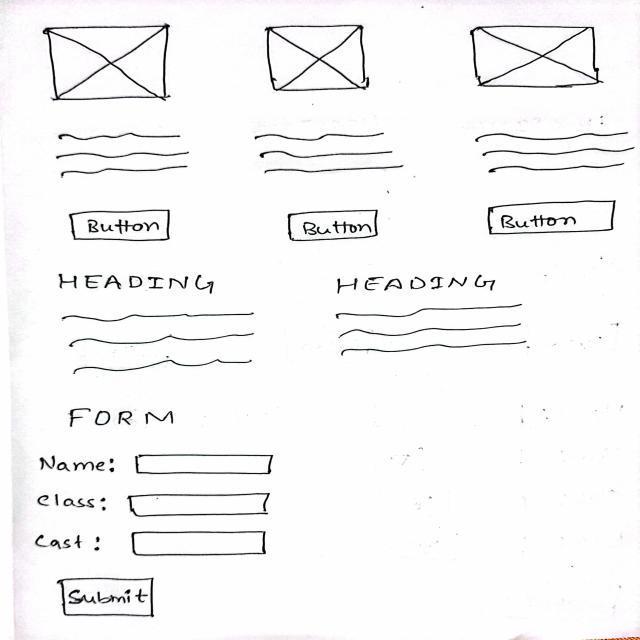 Button Button Button
HEADING HEADING
FORM
Name:
Class:
Cast :
Submit